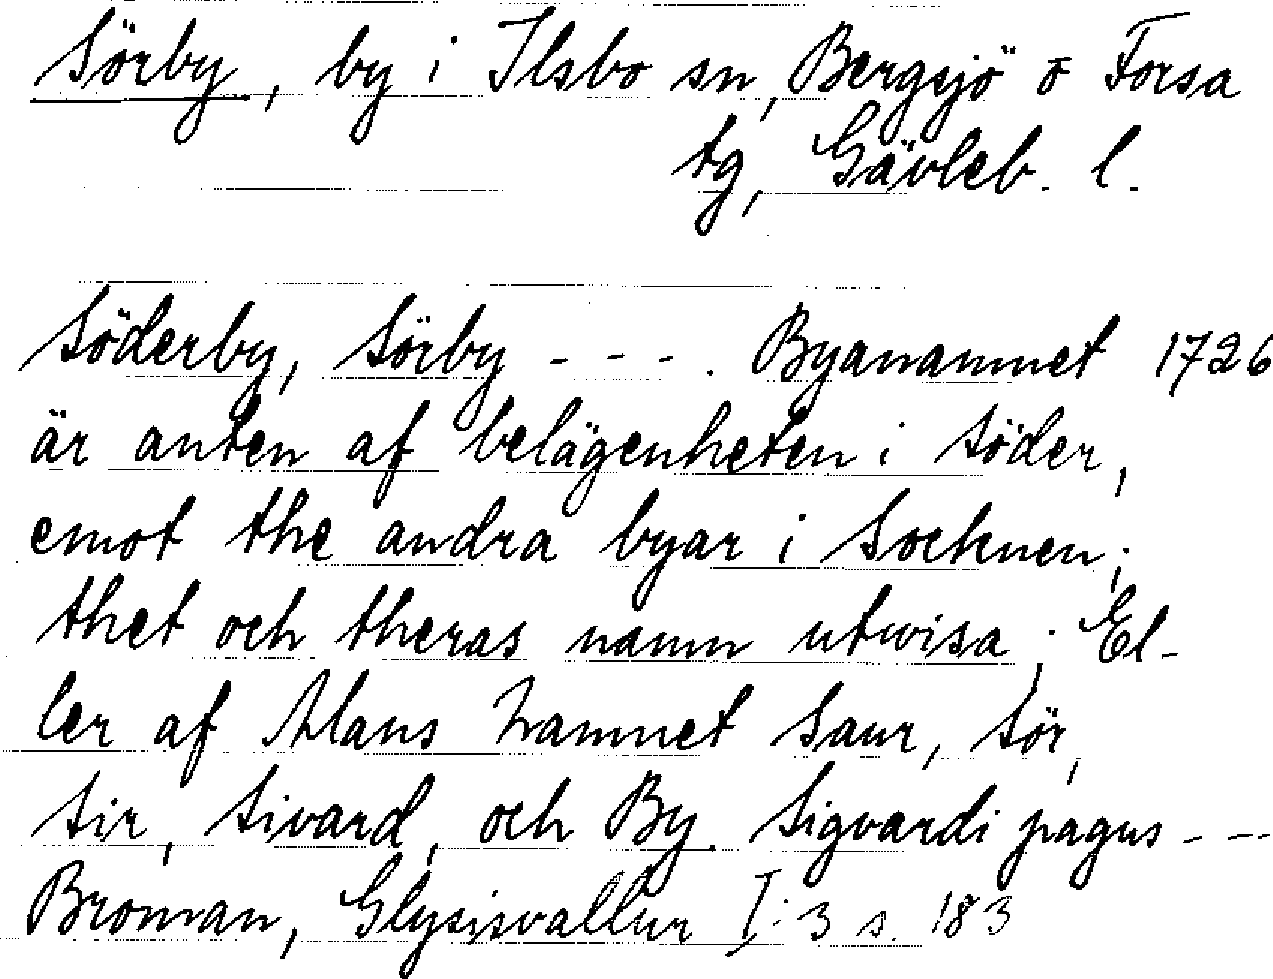 Sörby, by i Ilsbo sn, Bergsjö o Forsa
tg, Gävleb. l.
Söderby, Sörby - - - . Byanamnet 1726
är anten af belägenheten i söder,
emot the andra byar i Socknen;
thet och theras namn utwisa; El-
ler af Mans Namnet Saur, Sör,
Sir, Sivard, och By. Sigvardi pagus - --
Broman, Glysisvallur I: 3 s. 183